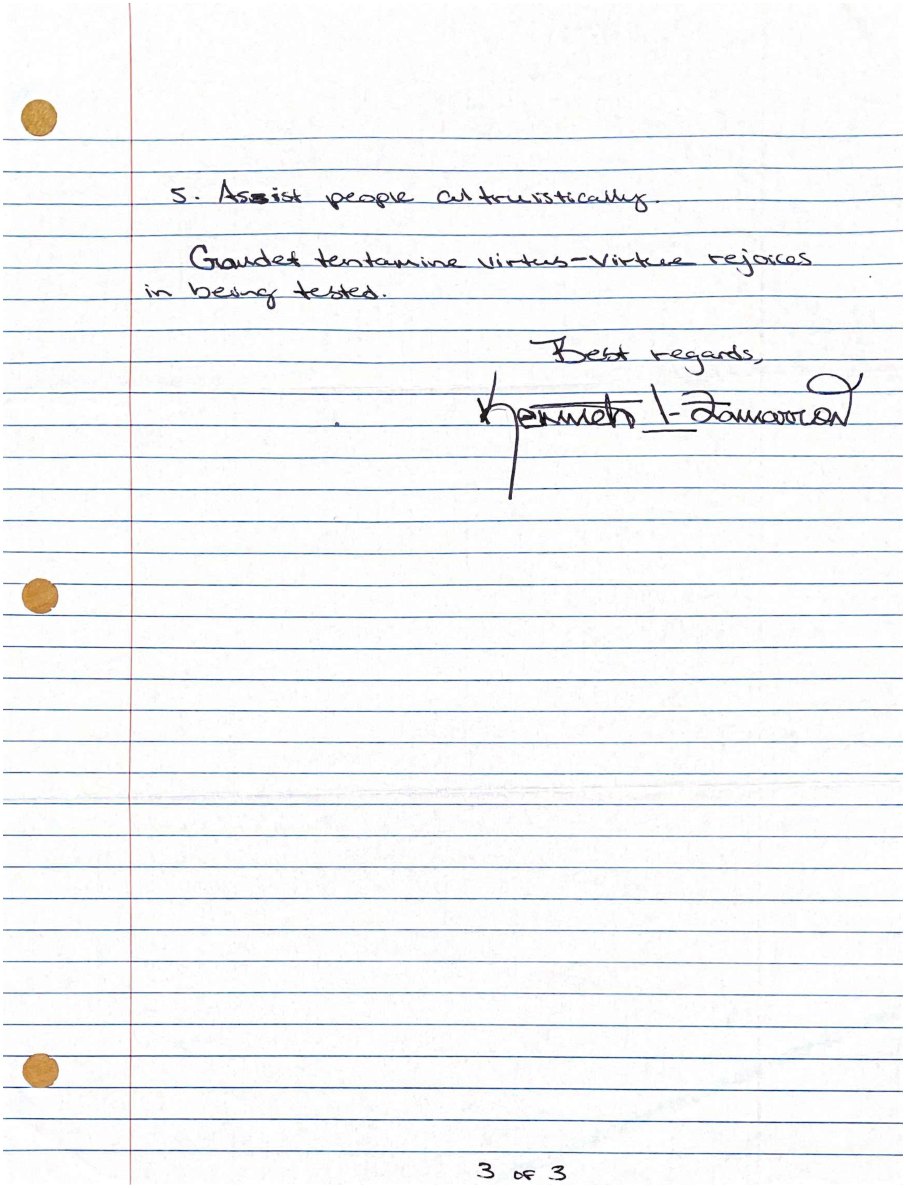 5. Assist people altruistically.
Gaudet tentamine virtus-Virtue rejoices
in being tested.
Best regards,
Kenneth I-Zamarron
3 of 3